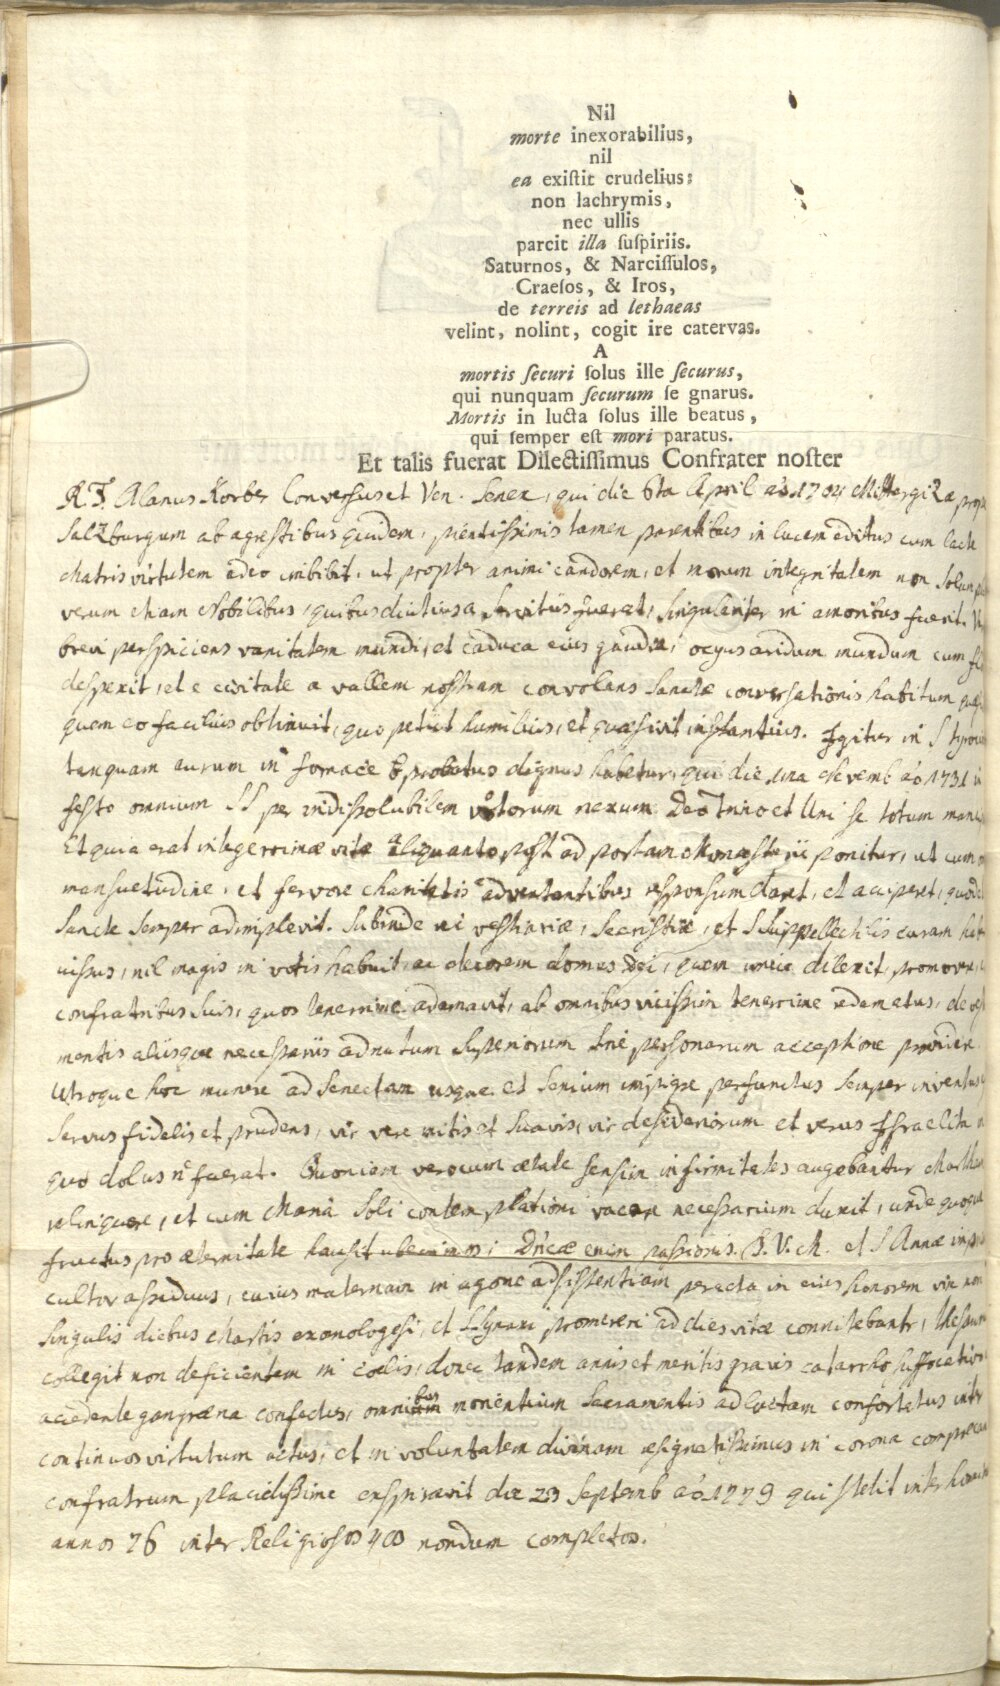 Nil
morte inexorabilius,
nil
ea exiſtit crudelius:
non lachrymis,
nec ullis
parcit illa ſuſpiriis.
Saturnos, & Narciſſulos,
Craeſos, & Iros,
de terreis ad lethaeas
velint, nolint, cogit ire catervas.
A
mortis ſecuri ſolus ille ſecurus,
qui nunquam ſecurum ſe gnarus.
Mortis in lucta ſolus ille beatus,
qui ſemper eſt mori paratus.
Et talis fuerat Dilectiſſimus Confrater noſter
R. F. Alanus Korber Conversus et Ven. Senex, qui die 6ta April aō 1704 prope
Salzburgum ab agrestibus quidem, pientissimis tamen parentibus in lucem editus cum lacte
Matris virtutem adeo imbibit, ut propter animi candorem, et morum integritatem non solum
verum etiam Nobilibus, quibus diutius a servitiis fuerat, singulariter in amoribus fuerit.
brevi perspiciens vanitatem mundi, et caduca eius gaudia, ocyus aridum mundum cum
despexit, et e civitate a vallem nostram convolans Sanctæ conversationis habitum
quem eo facilius obtinuit, quo petiit humilius, et quæsivit instantius. Igitur in
tanquam aurum in fornace probatus dignus habetur, qui die 1ma Novemb aō 1731 in
festo omnium SS per indissolubilem votorum nexum Deo Trino et Uni se totum
Et quia erat integerrimæ vitæ aliquanto post ad portam Monasterii ponitur, ut cum
mansuetudine, et fervore charitatis adventantibus responsum daret, et acciperet, quod
Sancte semper adimplevit. Subinde rei vestiariæ, Sacristiæ, et Suppellectilis curam
iussus, nil magis in votis habuit, ac decorem domus Dei, quem unice dilexit, promovere,
confratribus suis, quos tenerrime adamavit, ab omnibus vicissim tenerrime redamatus, de
mentis aliisque necessariis ad nutum Superiorum sine personarum acceptione
Utroque hoc munere ad Senectam usque et Senium impigre perfunctus semper inventus
Servus fidelis et prudens, vir vere mitis et suavis, vir desideriorum et verus Israelita
quo dolus n fuerat. Quoniam vero cum ætate sensim infirmitates augebantur Martham
relinquere, et cum Maria soli contemplationi vacare necessarium duxit, unde quoque
fructus pro æternitate hausit uberrimos; Dnicæ enim passionis. B. V. M. et S Annæ
cultor assiduus, cuius maternam in agone adsistentiam peracta in eius honorem vix non
singulis diebus Martis exomologesi, et Synaxi promereri ad dies vitæ connitebatr,
collegit non deficientem in cœlis, donec tandem annis et meritis gravis catarrho suffocativo
accedente gangræna confectus, omnibus morientium Sacramentis ad luctam confortatus inter
continuos virtutum actus, et in voluntatem divinam resignatissimus in corona
confratrum placidissime exspiravit die 23 Septemb aō 1779 qui stetit inter
annos 76 inter Religiosos 48 nondum completos.